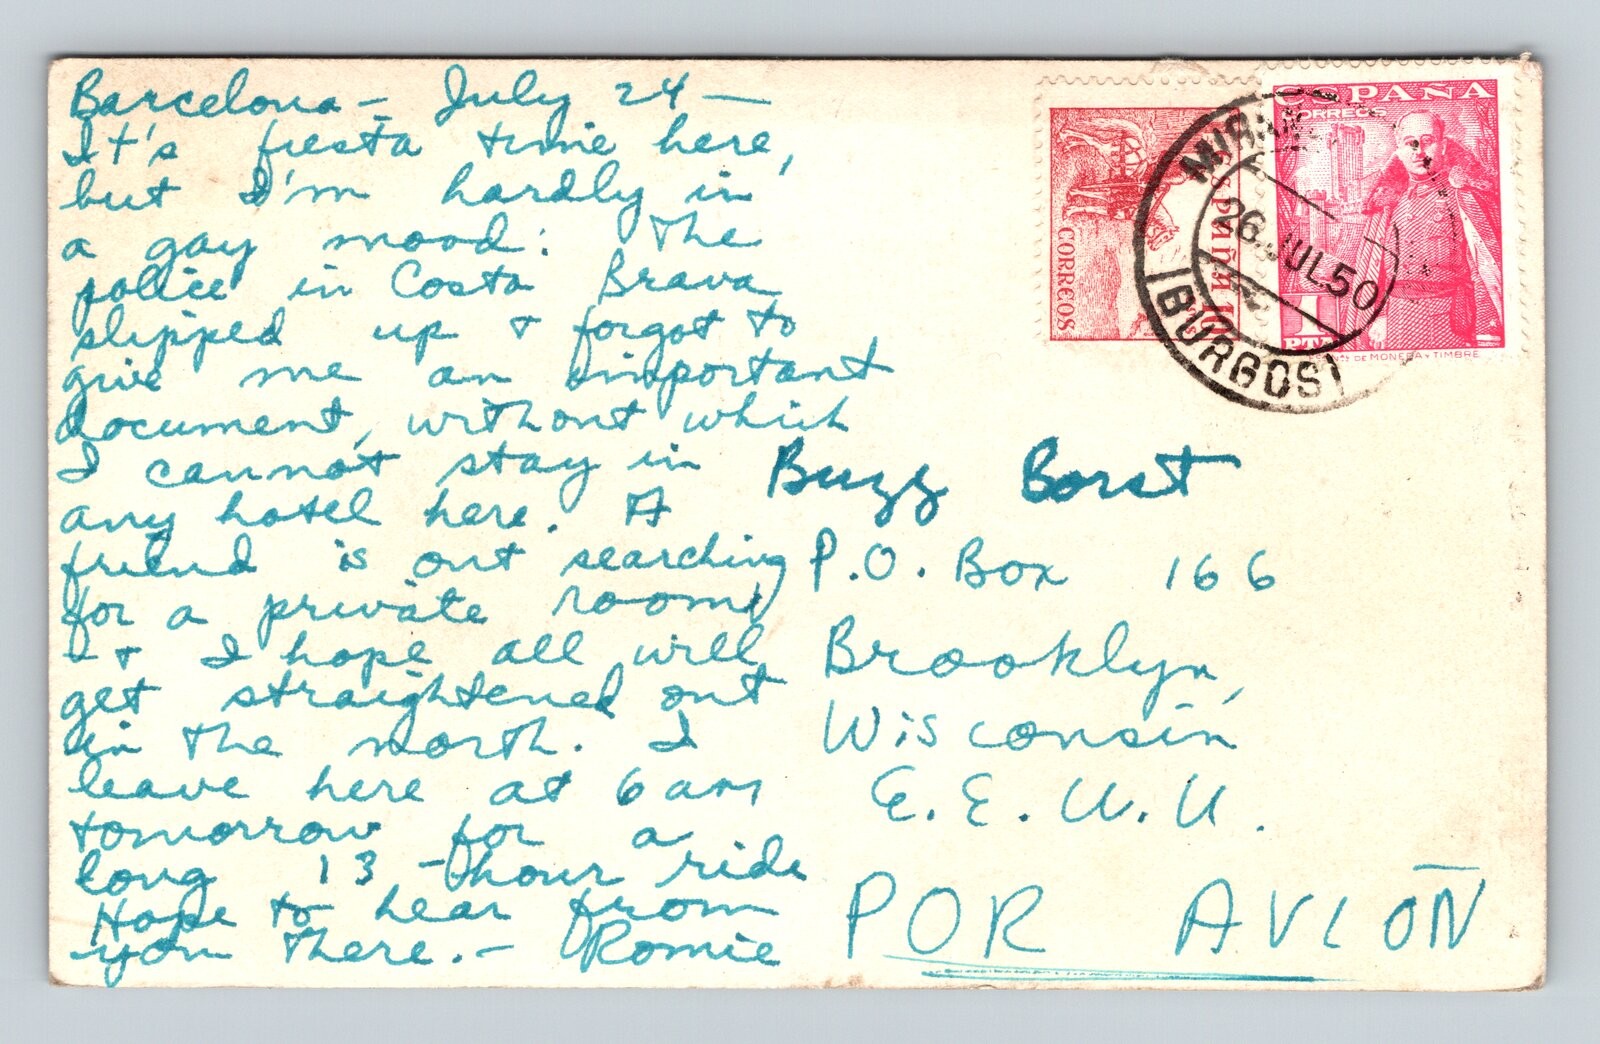 Barcelona – July 24 –
It's fiesta time here,
but I'm hardly in
a gay mood: The
police in Costa Brava
slipped up + forgot to
give me an important
document, without which
I cannot stay in
any hotel here. A
friend is out searching
for a private room,
+ I hope all will
get straightened out
in the north. I
leave here at 6 am
tomorrow for a
long 13-hour ride
Hope to hear from
you there. – Romie
Buzz Borst
P.O. Box 166
Brooklyn,
Wisconsin
E.E.U.U.
POR AVIÓN
ESPAÑA
CORREOS
1
PTA
DE MONEDA Y TIMBRE
CORREOS
ESPAÑA
26 JUL 50
(BURGOS)